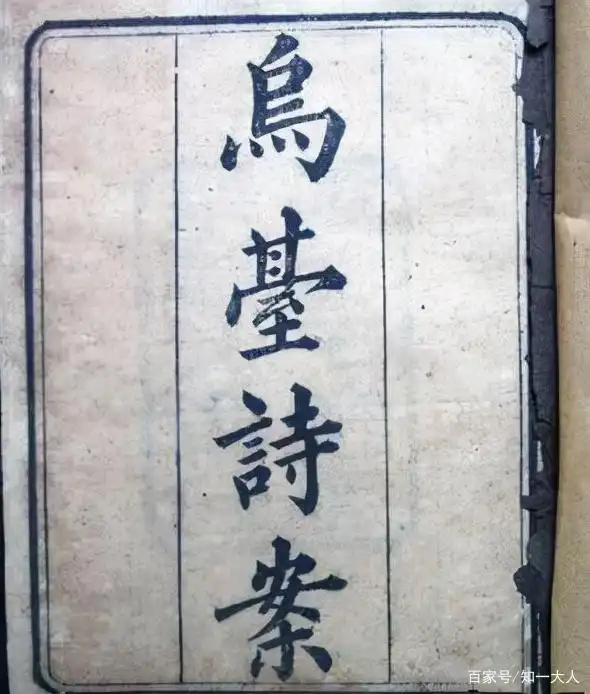 烏臺詩案
百家号/知一大人